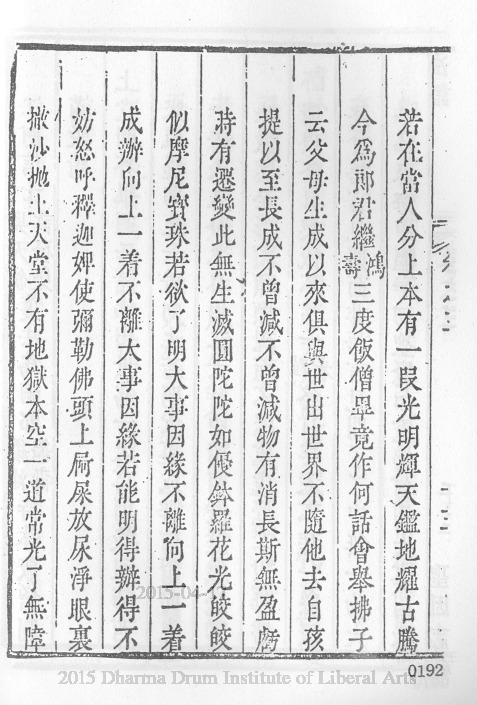 若在當人分上本有一段光明輝天鑑地耀古騰
今爲郎君繼鴻壽三度飯僧畢竟作何話會舉拂子
云父母生成以來俱與世出世界不隨他去自孩
提以至長成不曾減不曾減物有消長斯無盈虧
時有遷變此無生滅圓陀陀如優鉢羅花光皎皎
似摩尼寶珠若欲了明大事因緣不離向上一着
成辦向上一着不離大事因緣若能明得辦得不
妨怒呼釋迦婢使彌勒佛頭上屙屎放尿淨眼裏
撒沙拋土天堂不有地獄本空一道常光了無障
0192
2015 Dharma Drum Institute of Liberal Arts